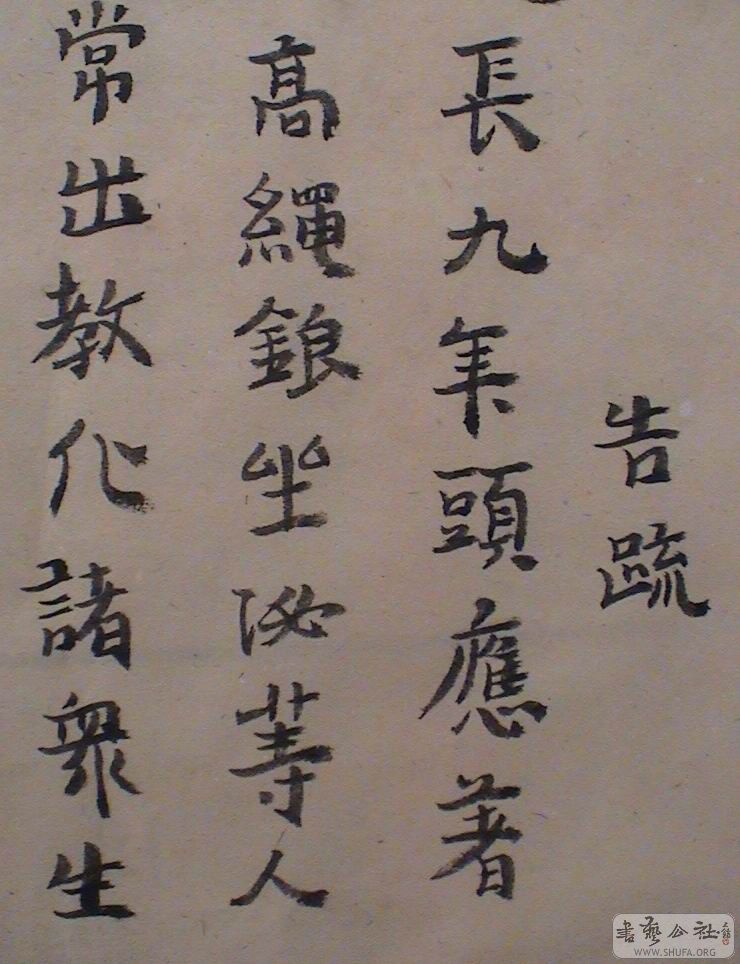 告疏
長九年頭應著
高繩銀坐泌等人
常出教化諸衆生
書藝公社
WWW.SHUFA.ORG